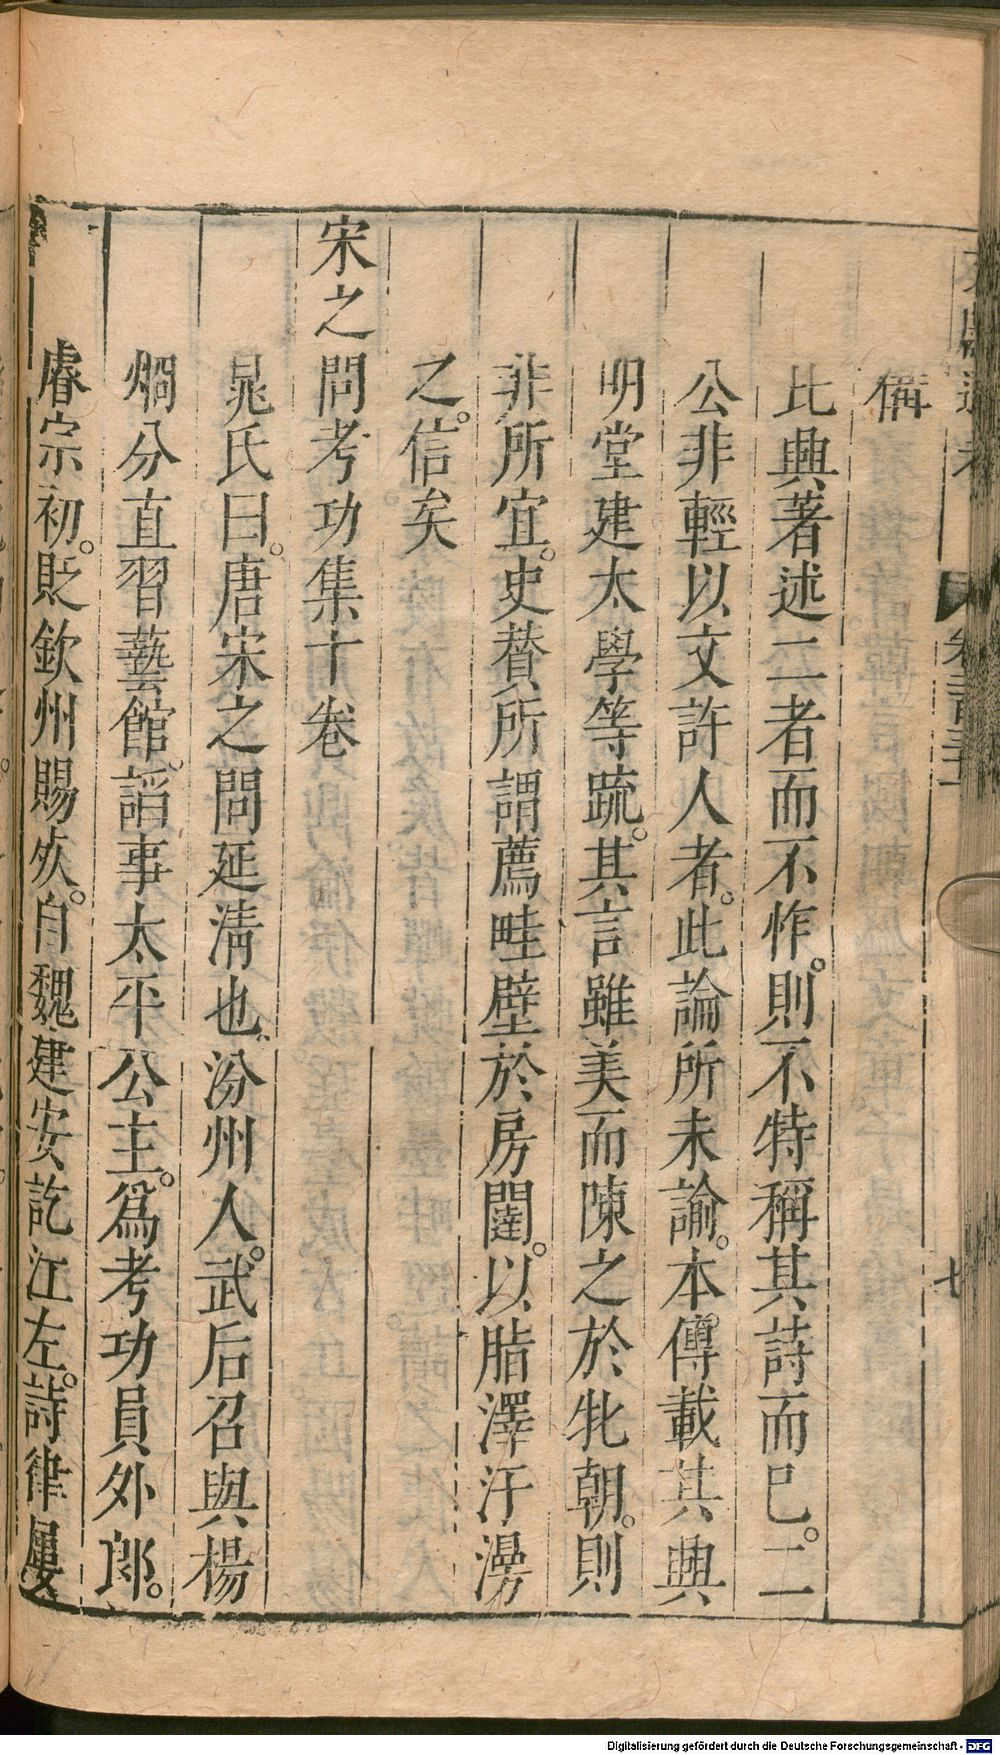 文獻通考 卷二百三十一 七
備
比興著述二者而不怍。則不特稱其詩而已。二
公非輕以文許人者。此論所未諭。本傳載其興
明堂建太學等疏。其言雖美而陳之於牝朝。則
非所宜。史賛所謂薦畦壁於房闥。以脂澤汙漫
之。信矣
宋之問考功集十卷
晁氏曰。唐宋之問延淸也。汾州人。武后召與楊
烱分直習藝館。謟事太平公主。爲考功員外郎。
睿宗初。貶欽州賜死。自魏建安訖江左。詩律屢
Digitalisierung gefördert durch die Deutsche Forschungsgemeinschaft - DFG